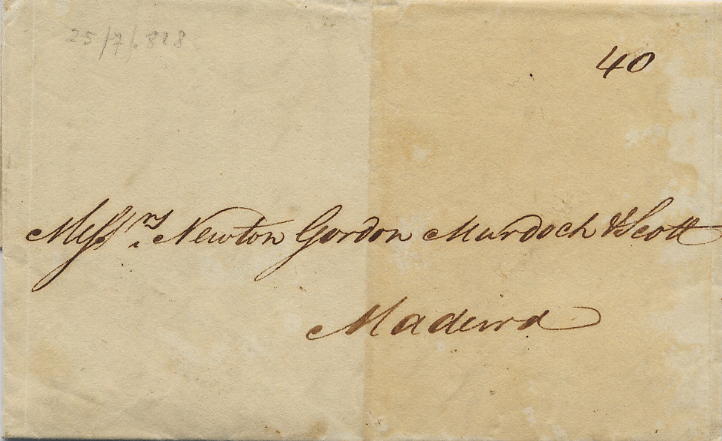 25/7/1818
40
Messrs. Newton Gordon Murdoch & Scott
Madeira